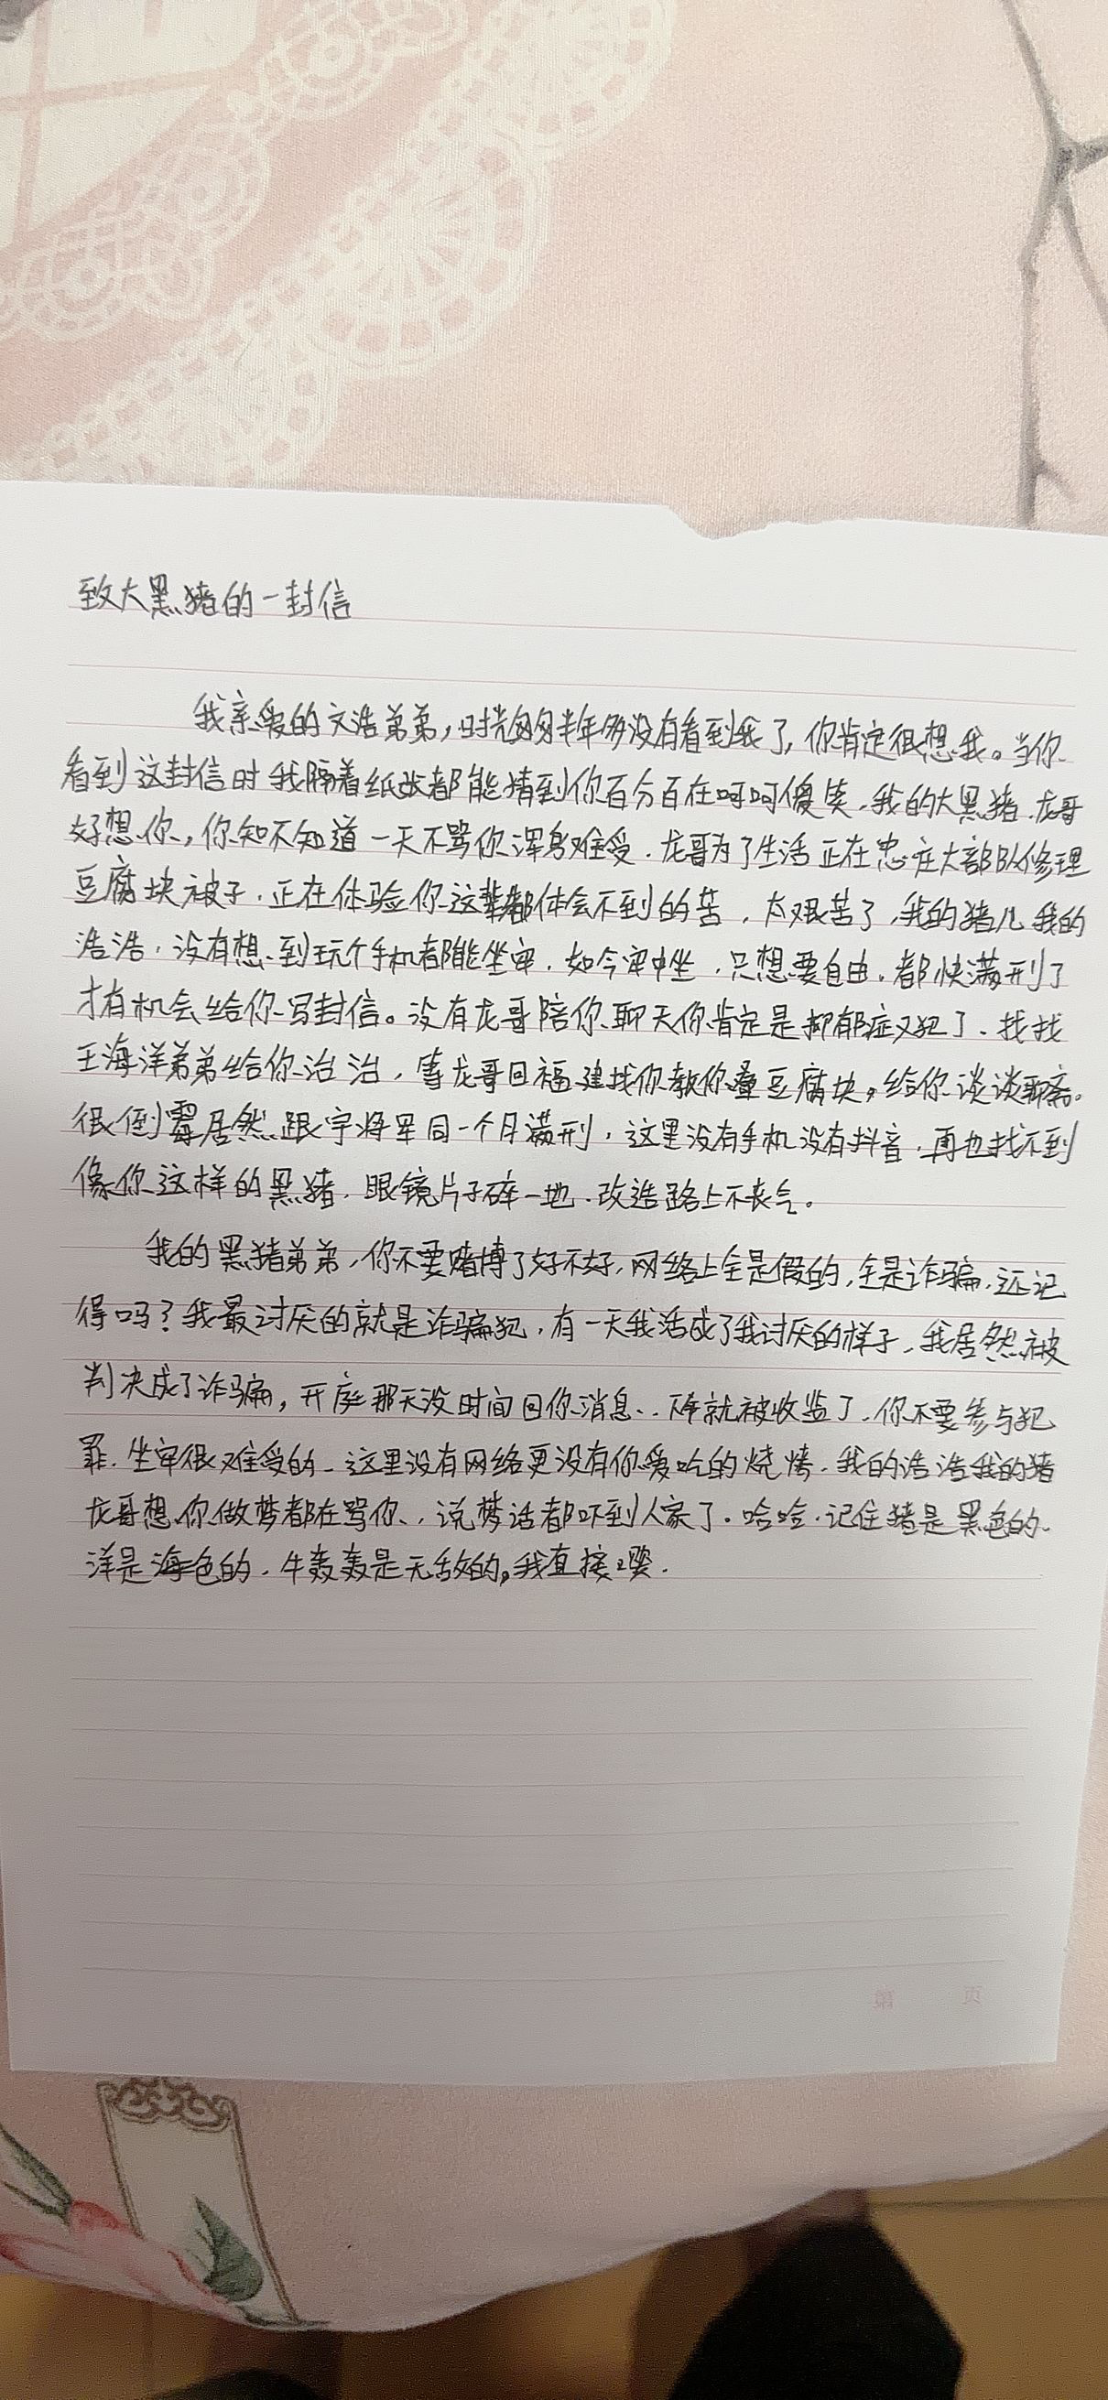 致大黑猪的一封信
我亲爱的文浩弟弟，时光匆匆半年多没有看到我了，你肯定很想我。当你
看到这封信时我隔着纸张都能猜到你百分百在呵呵傻笑，我的大黑猪，龙哥
好想你，你知不知道一天不骂你浑身难受，龙哥为了生活正在忠庄大部队修理
豆腐块被子，正在体验你这辈都体会不到的苦，太艰苦了，我的猪儿我的
浩浩，没有想到玩个手机都能坐牢，如今牢中坐，只想要自由，都快满刑了
才有机会给你写封信。没有龙哥陪你聊天你肯定是抑郁症又犯了，找找
王海洋弟弟给你治治，等龙哥回福建找你教你叠豆腐块，给你谈谈聊斋。
很倒霉居然跟宇将军同一个月满刑，这里没有手机没有抖音，再也找不到
像你这样的黑猪，眼镜片子碎一地，改造路上不丧气。
我的黑猪弟弟，你不要赌博了好不好，网络上全是假的，全是诈骗，还记
得吗？我最讨厌的就是诈骗犯，有一天我活成了我讨厌的样子，我居然被
判决成了诈骗，开庭那天没时间回你消息，就被收监了，你不要参与犯
罪，坐牢很难受的，这里没有网络更没有你爱吃的烧烤，我的浩浩我的猪
龙哥想你做梦都在骂你，说梦话都吓到人家了。哈哈，记住猪是黑色的，
洋是海色的，牛轰轰是无敌的，我直接
第 页